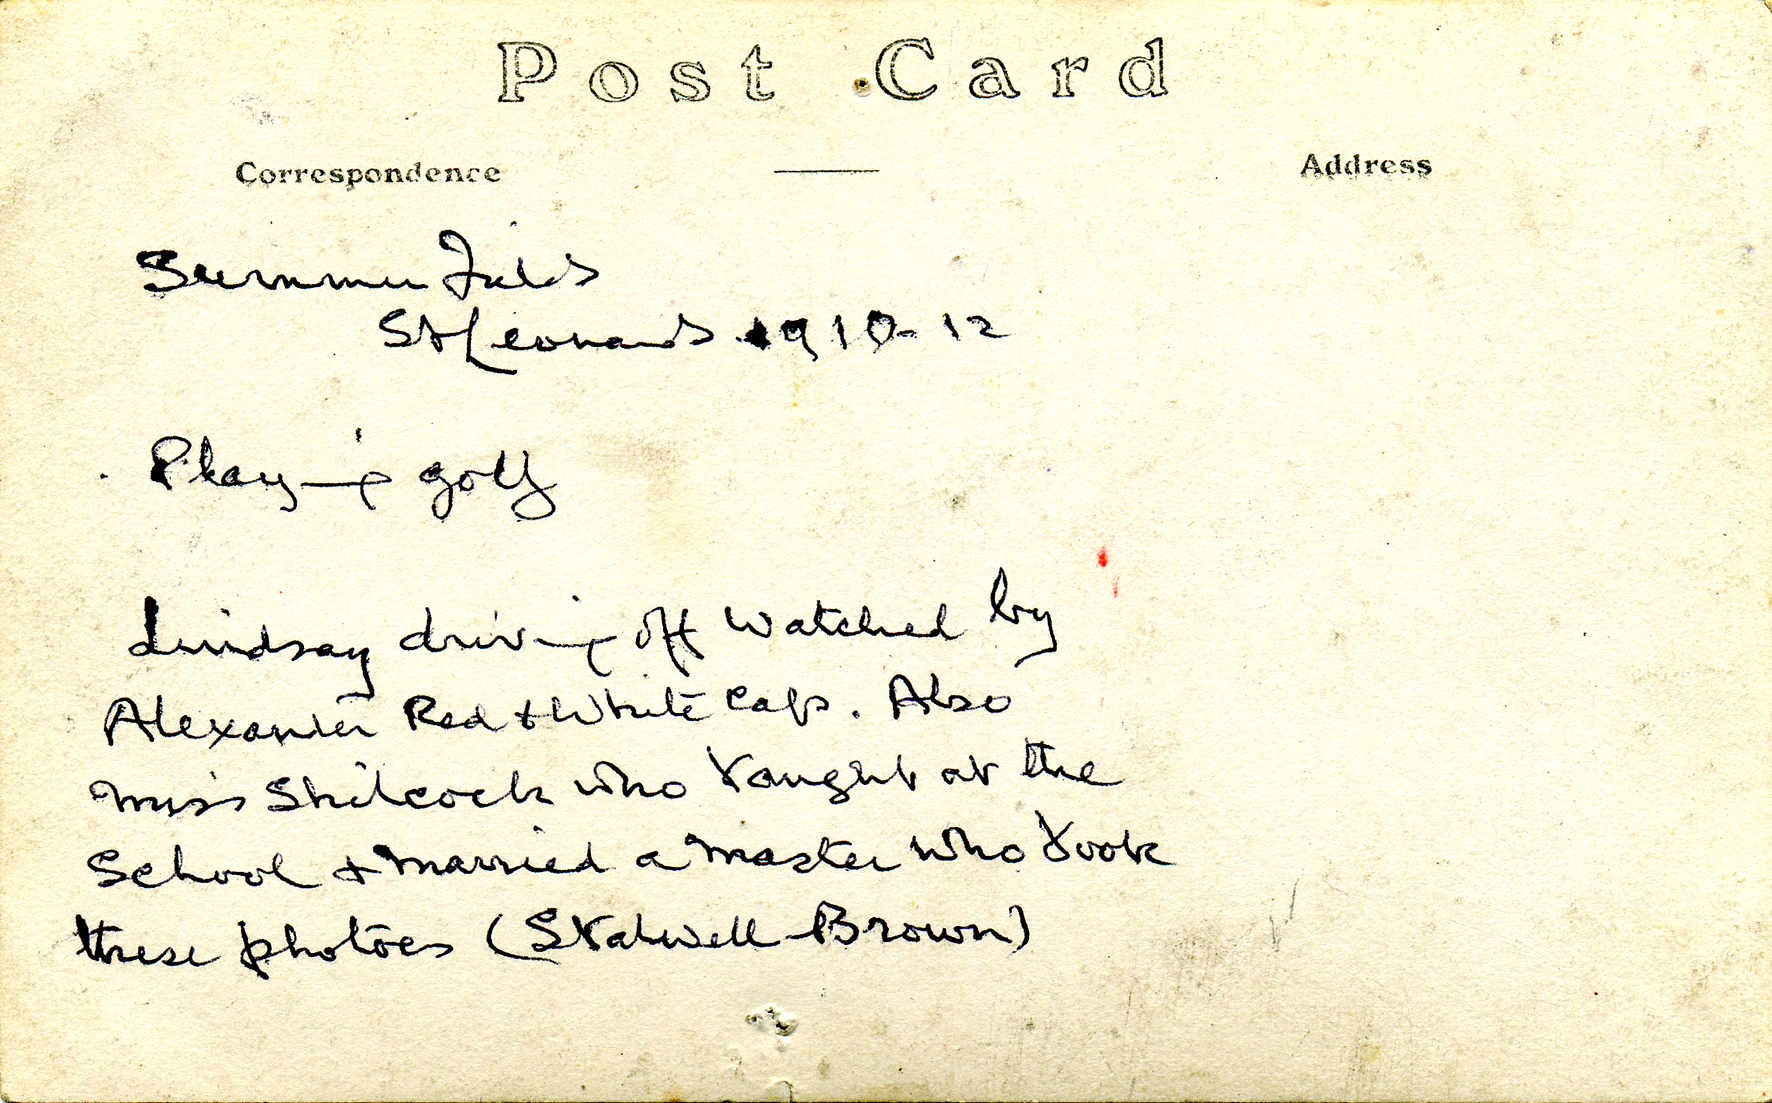 Post Card
Correspondence
Address
Summer Fields
St Leonards 1910-12
Playing golf
Lindsay driving off watched by
Alexander Red & White Caps. Also
Miss Shilcock who taught at the
School & married a master who took
these photoes (Stalwell-Brown)